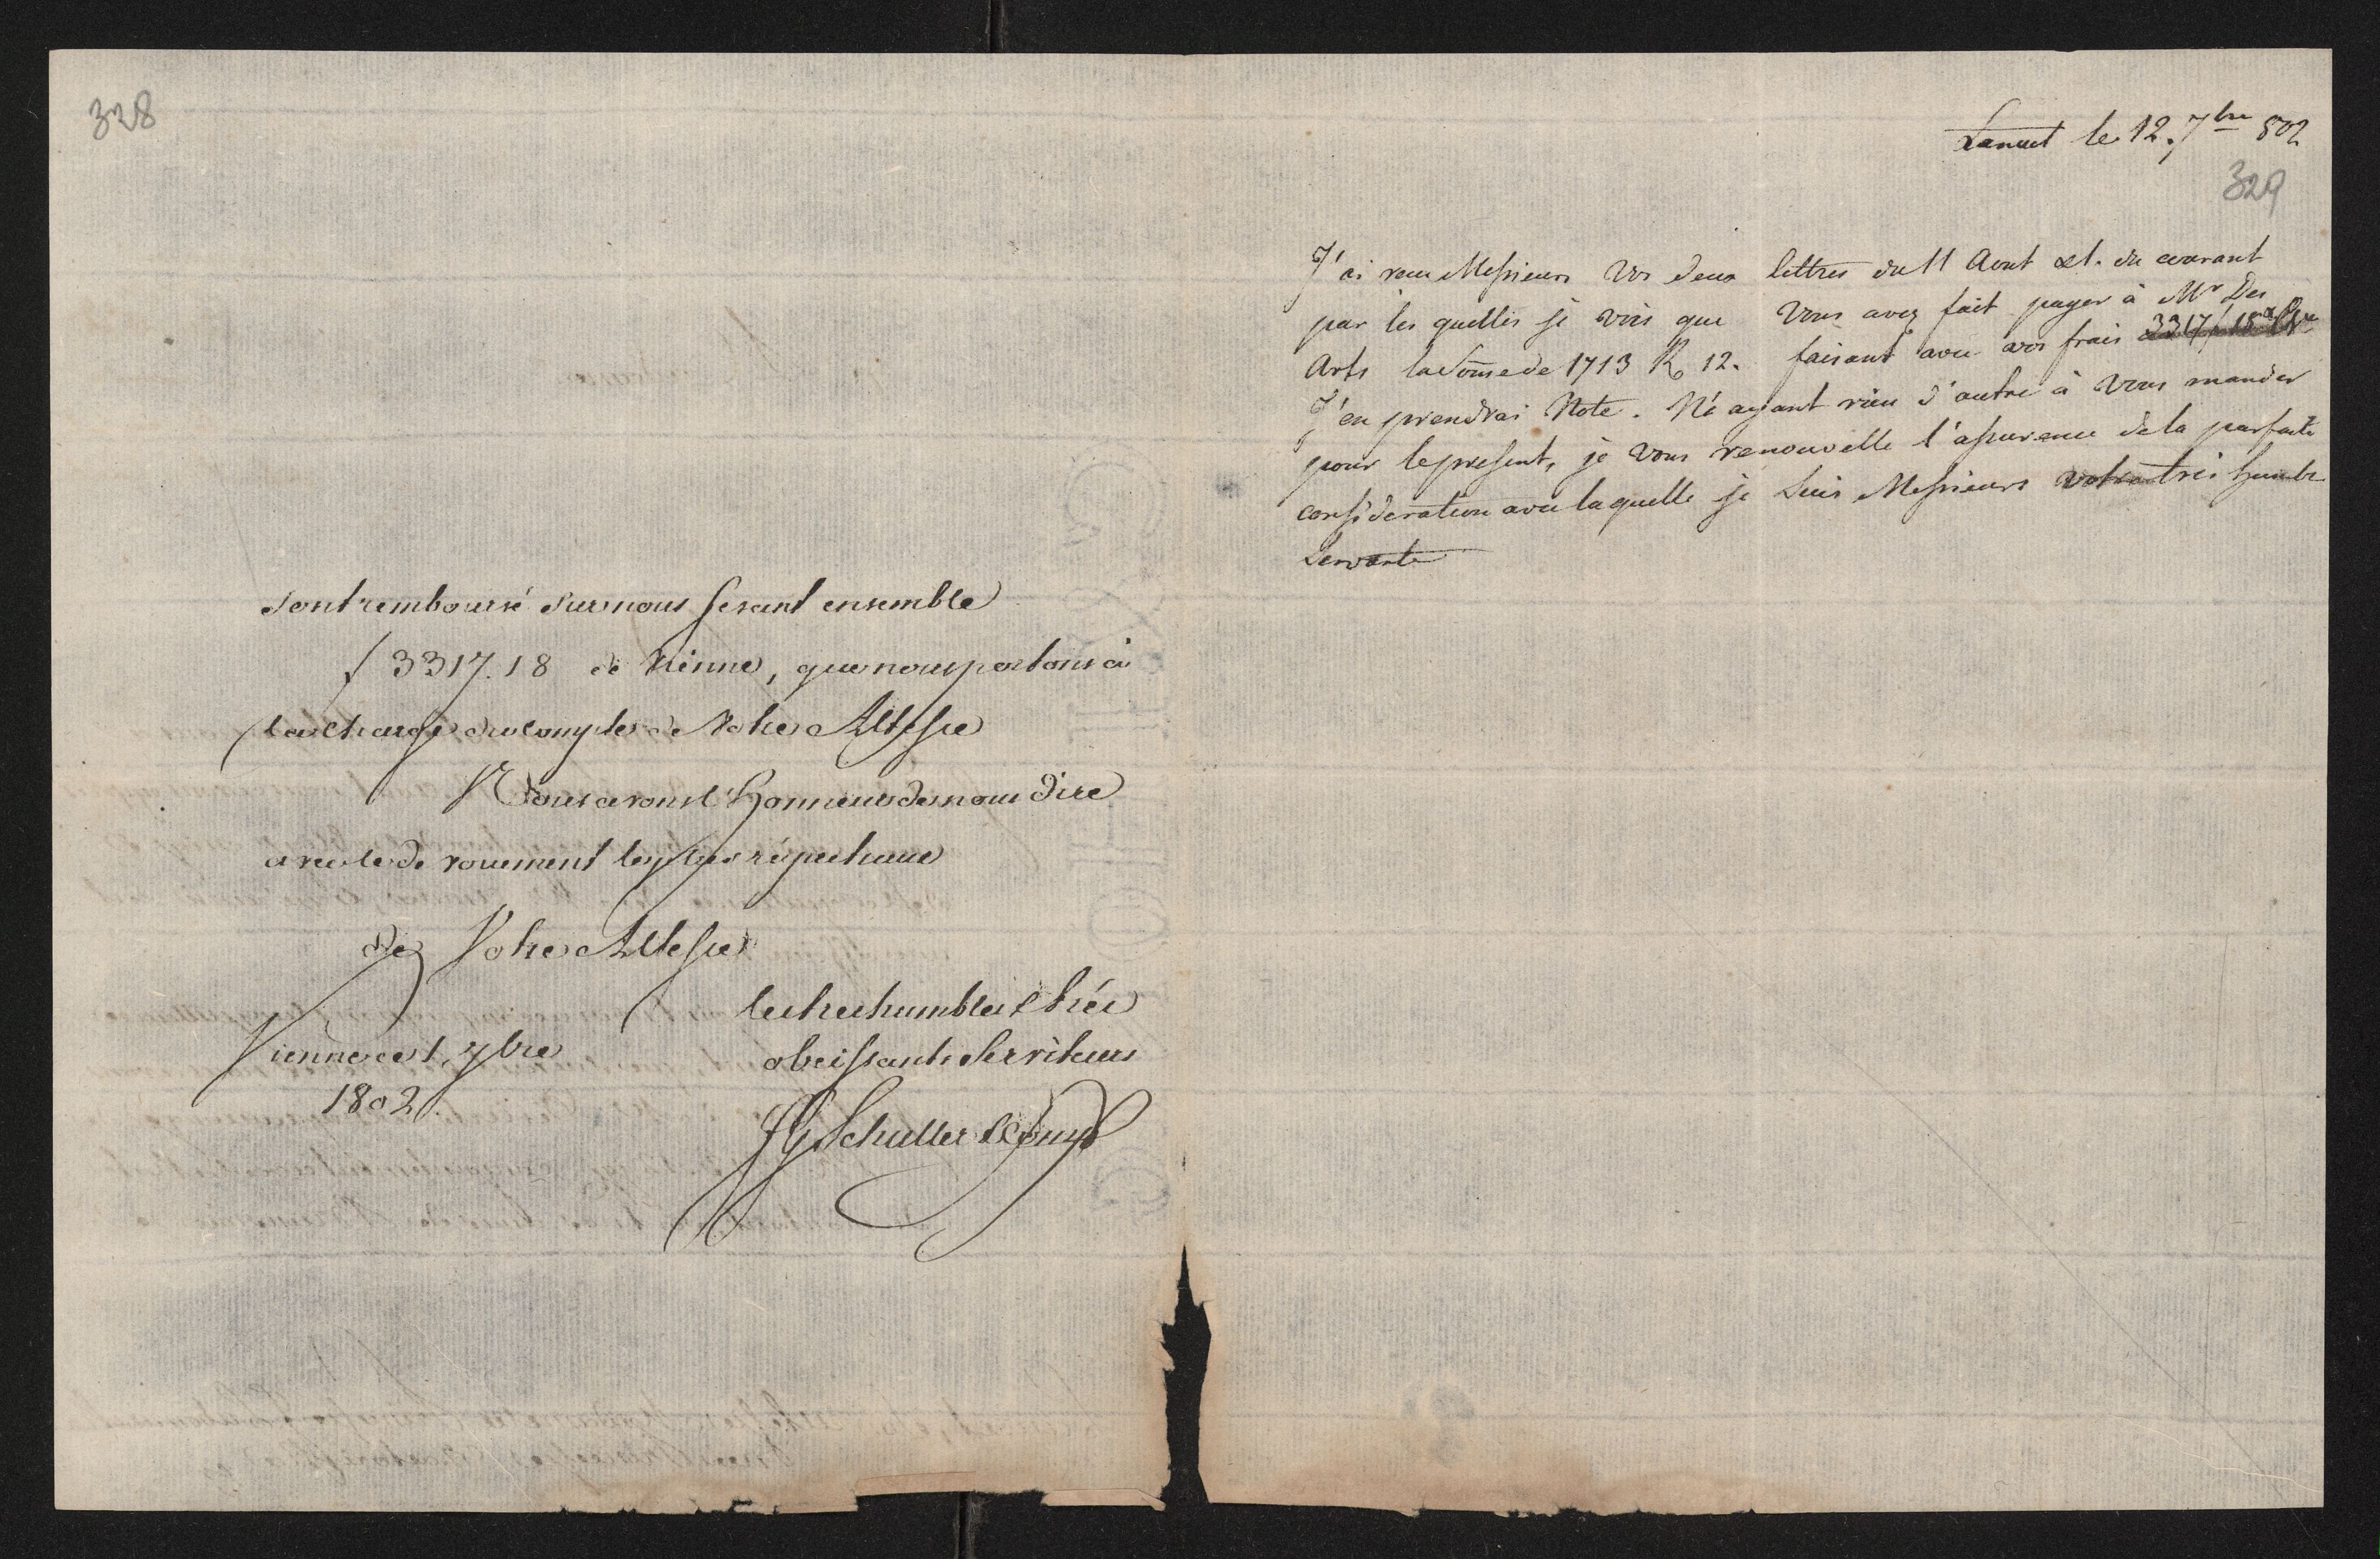 328
sont remboursé sur nous fesant ensemble
f 3317.18 de Vienne, que nous portons à
la charge du compte de Votre Altesse
Nous avons l'honneur de nous dire
avec le devouement le plus réspectueux
de Votre Altesse
les tres humbles & trés
obeissants Serviteurs
Vienne ce 1. 7bre
1802.
JG Schuller & Comp
Lancut le 12. 7bre 802
329
J'ai recu Messieurs Vos deux lettres du 11 Aout & 1. du courant
par les quelles je vois que Vous avez fait payer à Mr Des
Arts la Somme de 1713 R 12. faisant avec vos frais 3317 f 18
J'en prendrai Note. N'ayant rien d'autre à Vous mander
pour le present, je Vous renouvelle l'assurence de la parfaite
consideration avec laquelle je suis Messieurs Votre très humble
Servante